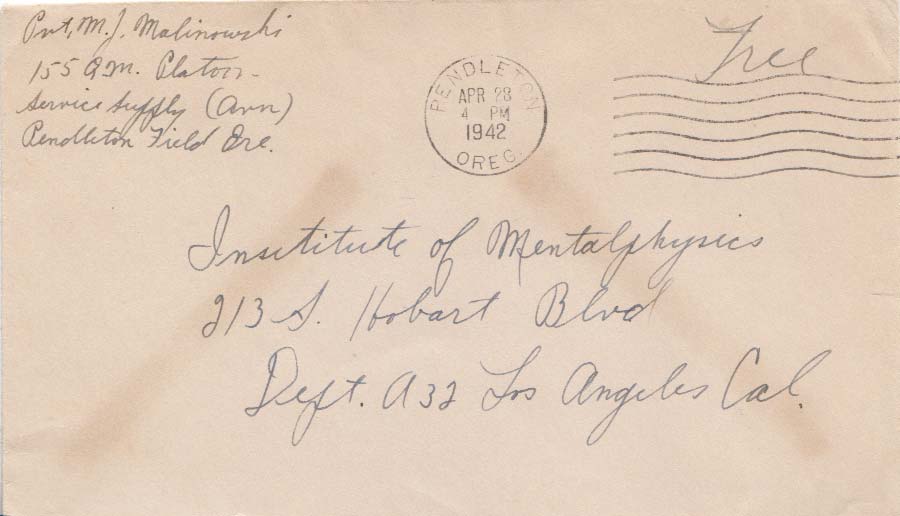 Pvt, M. J. Malinowski
155 Q.M. Platoon
Service Supply (Avn)
Pendleton Field Ore.
PENDLETON
APR 28
4 PM
1942
OREG.
Free
Insititute of Mentalphysics
213 S. Hobart Blvd
Dept. A32 Los Angeles Cal.